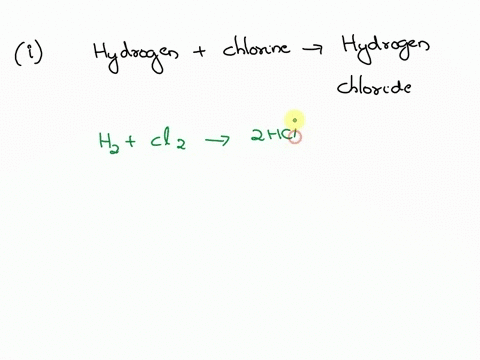 (i) Hydrogen + chlorine → Hydrogen
chloride
H₂ + Cl₂ → 2HCl